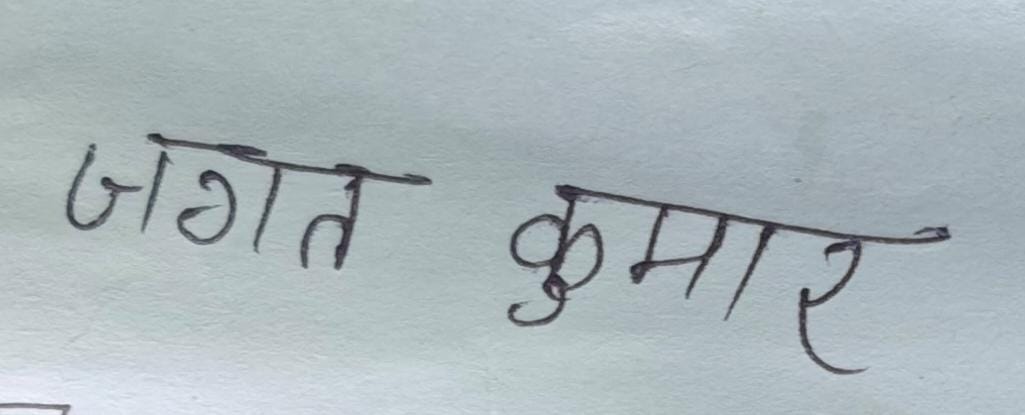 जगत कुमार